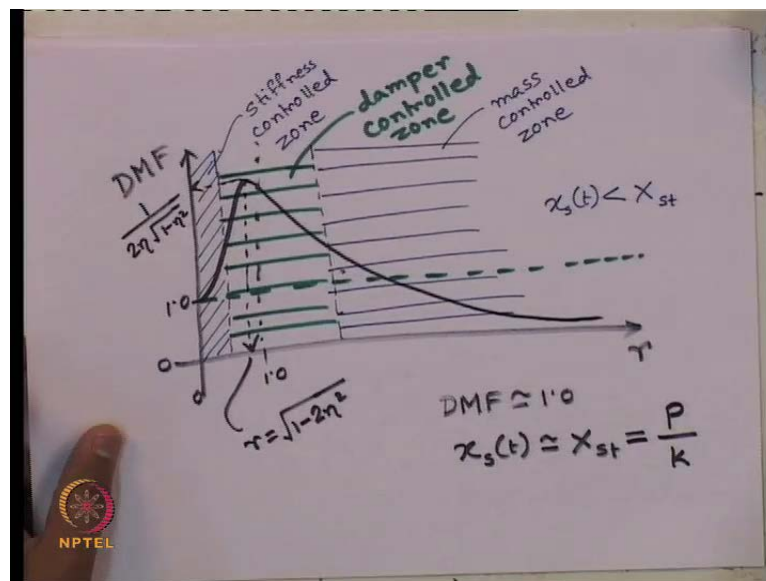 stiffness
controlled
zone
damper
controlled
zone
mass
controlled
zone
DMF
1
2η√1-η²
xs(t) < Xst
1.0
0
0
1.0
r
r = √1-2η²
DMF ≃ 1.0
xs(t) ≃ Xst = P
K
NPTEL